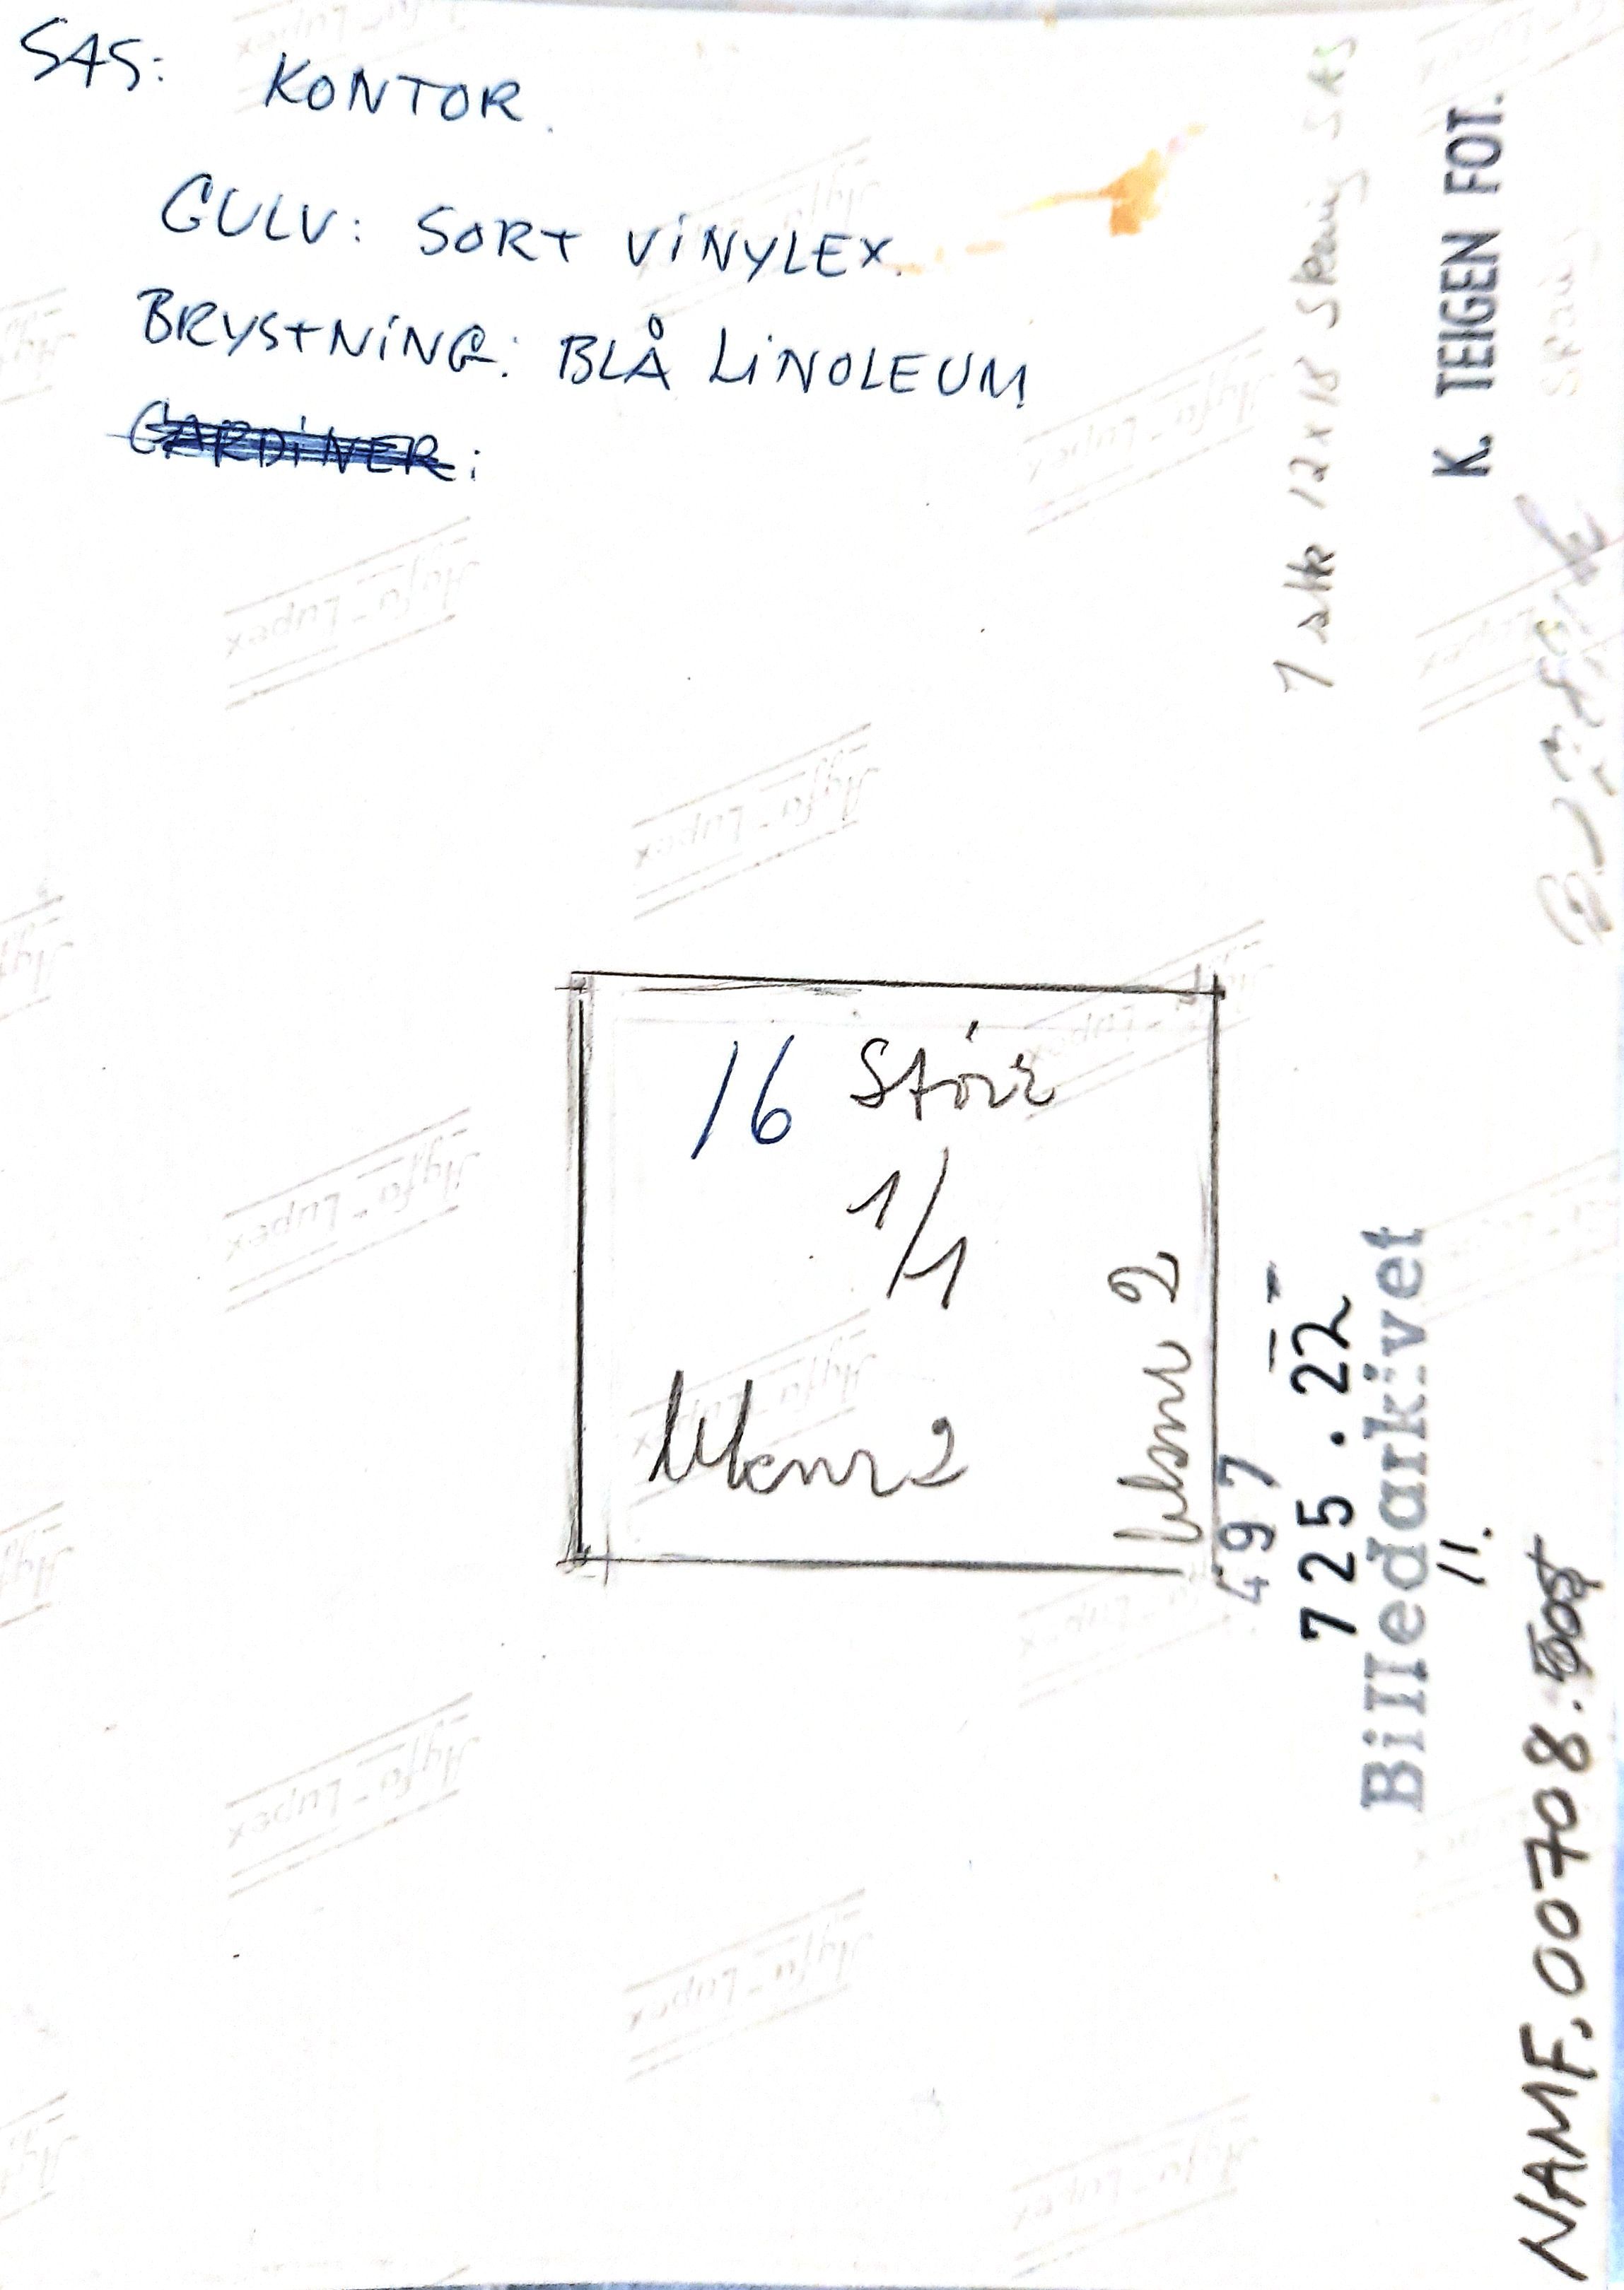 SAS: KONTOR.
GULV: SORT VINYLEX.
BRYSTNING: BLÅ LINOLEUM
GARDINER:
1 stk 12x18 SAS
K. TEIGEN FOT.
16
1/1
2
2
497
725.22
Billedarkivet
11.
NAMF.00708.
Agfa-Lupex